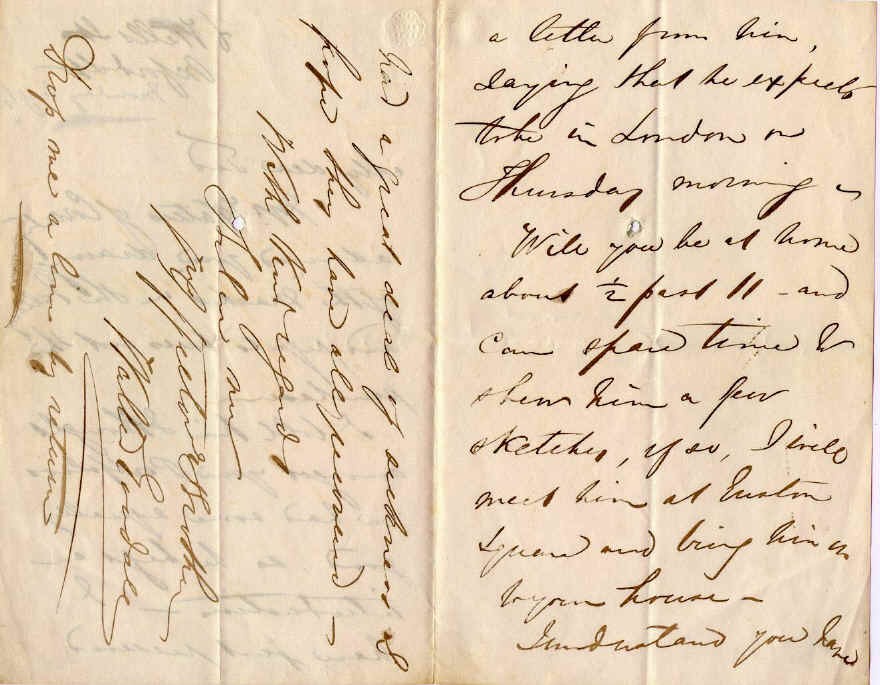 a letter from him,
saying that he expects
to be in London on
Thursday morning –
Will you be at home
about ½ past 11 – and
can spare time to
shew him a few
sketches, if so, I will
meet him at Euston
Square and bring him on
to your house –
I understand you have
had a great deal of sickness I
hope they have all recovered –
With Kind regards
I am
My Brother
Walter Goodall
Drop me a line by return